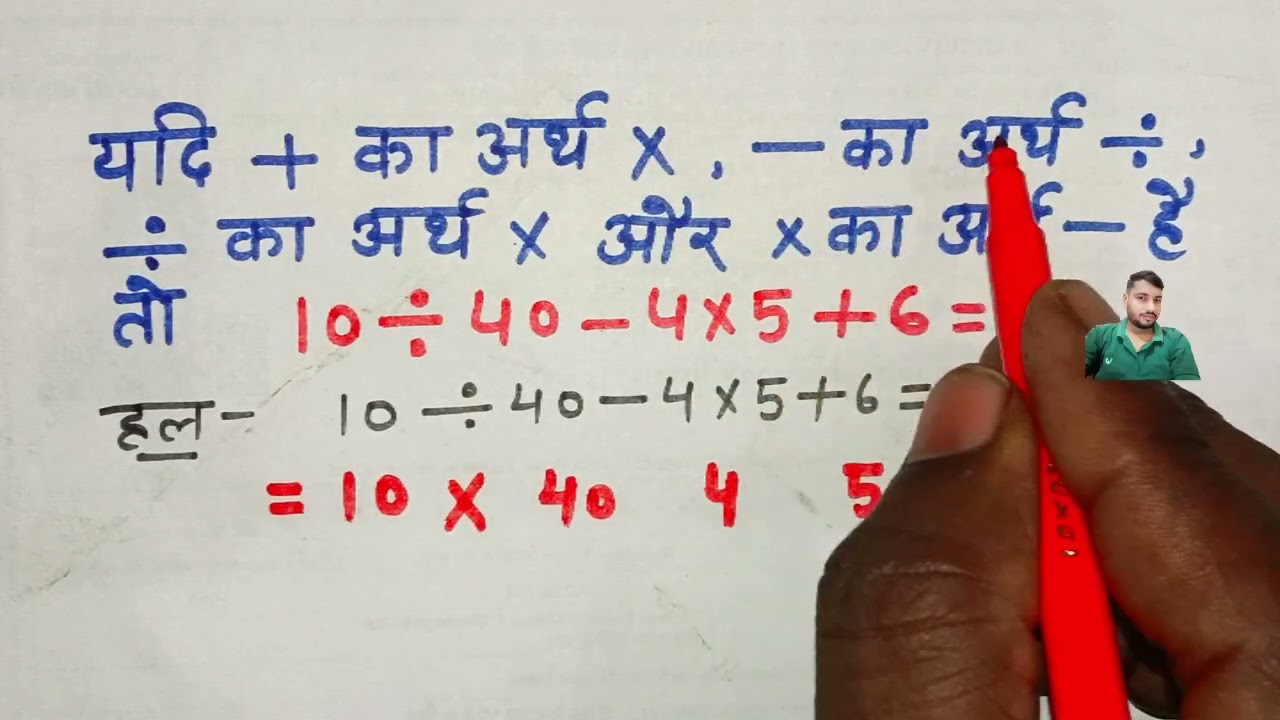 यदि + का अर्थ × , – का अर्थ ÷ ,
÷ का अर्थ × और × का – है
तो 10 ÷ 40 – 4 × 5 + 6 =
हल – 10 ÷ 40 – 4 × 5 + 6 =
= 10 × 40 4 5